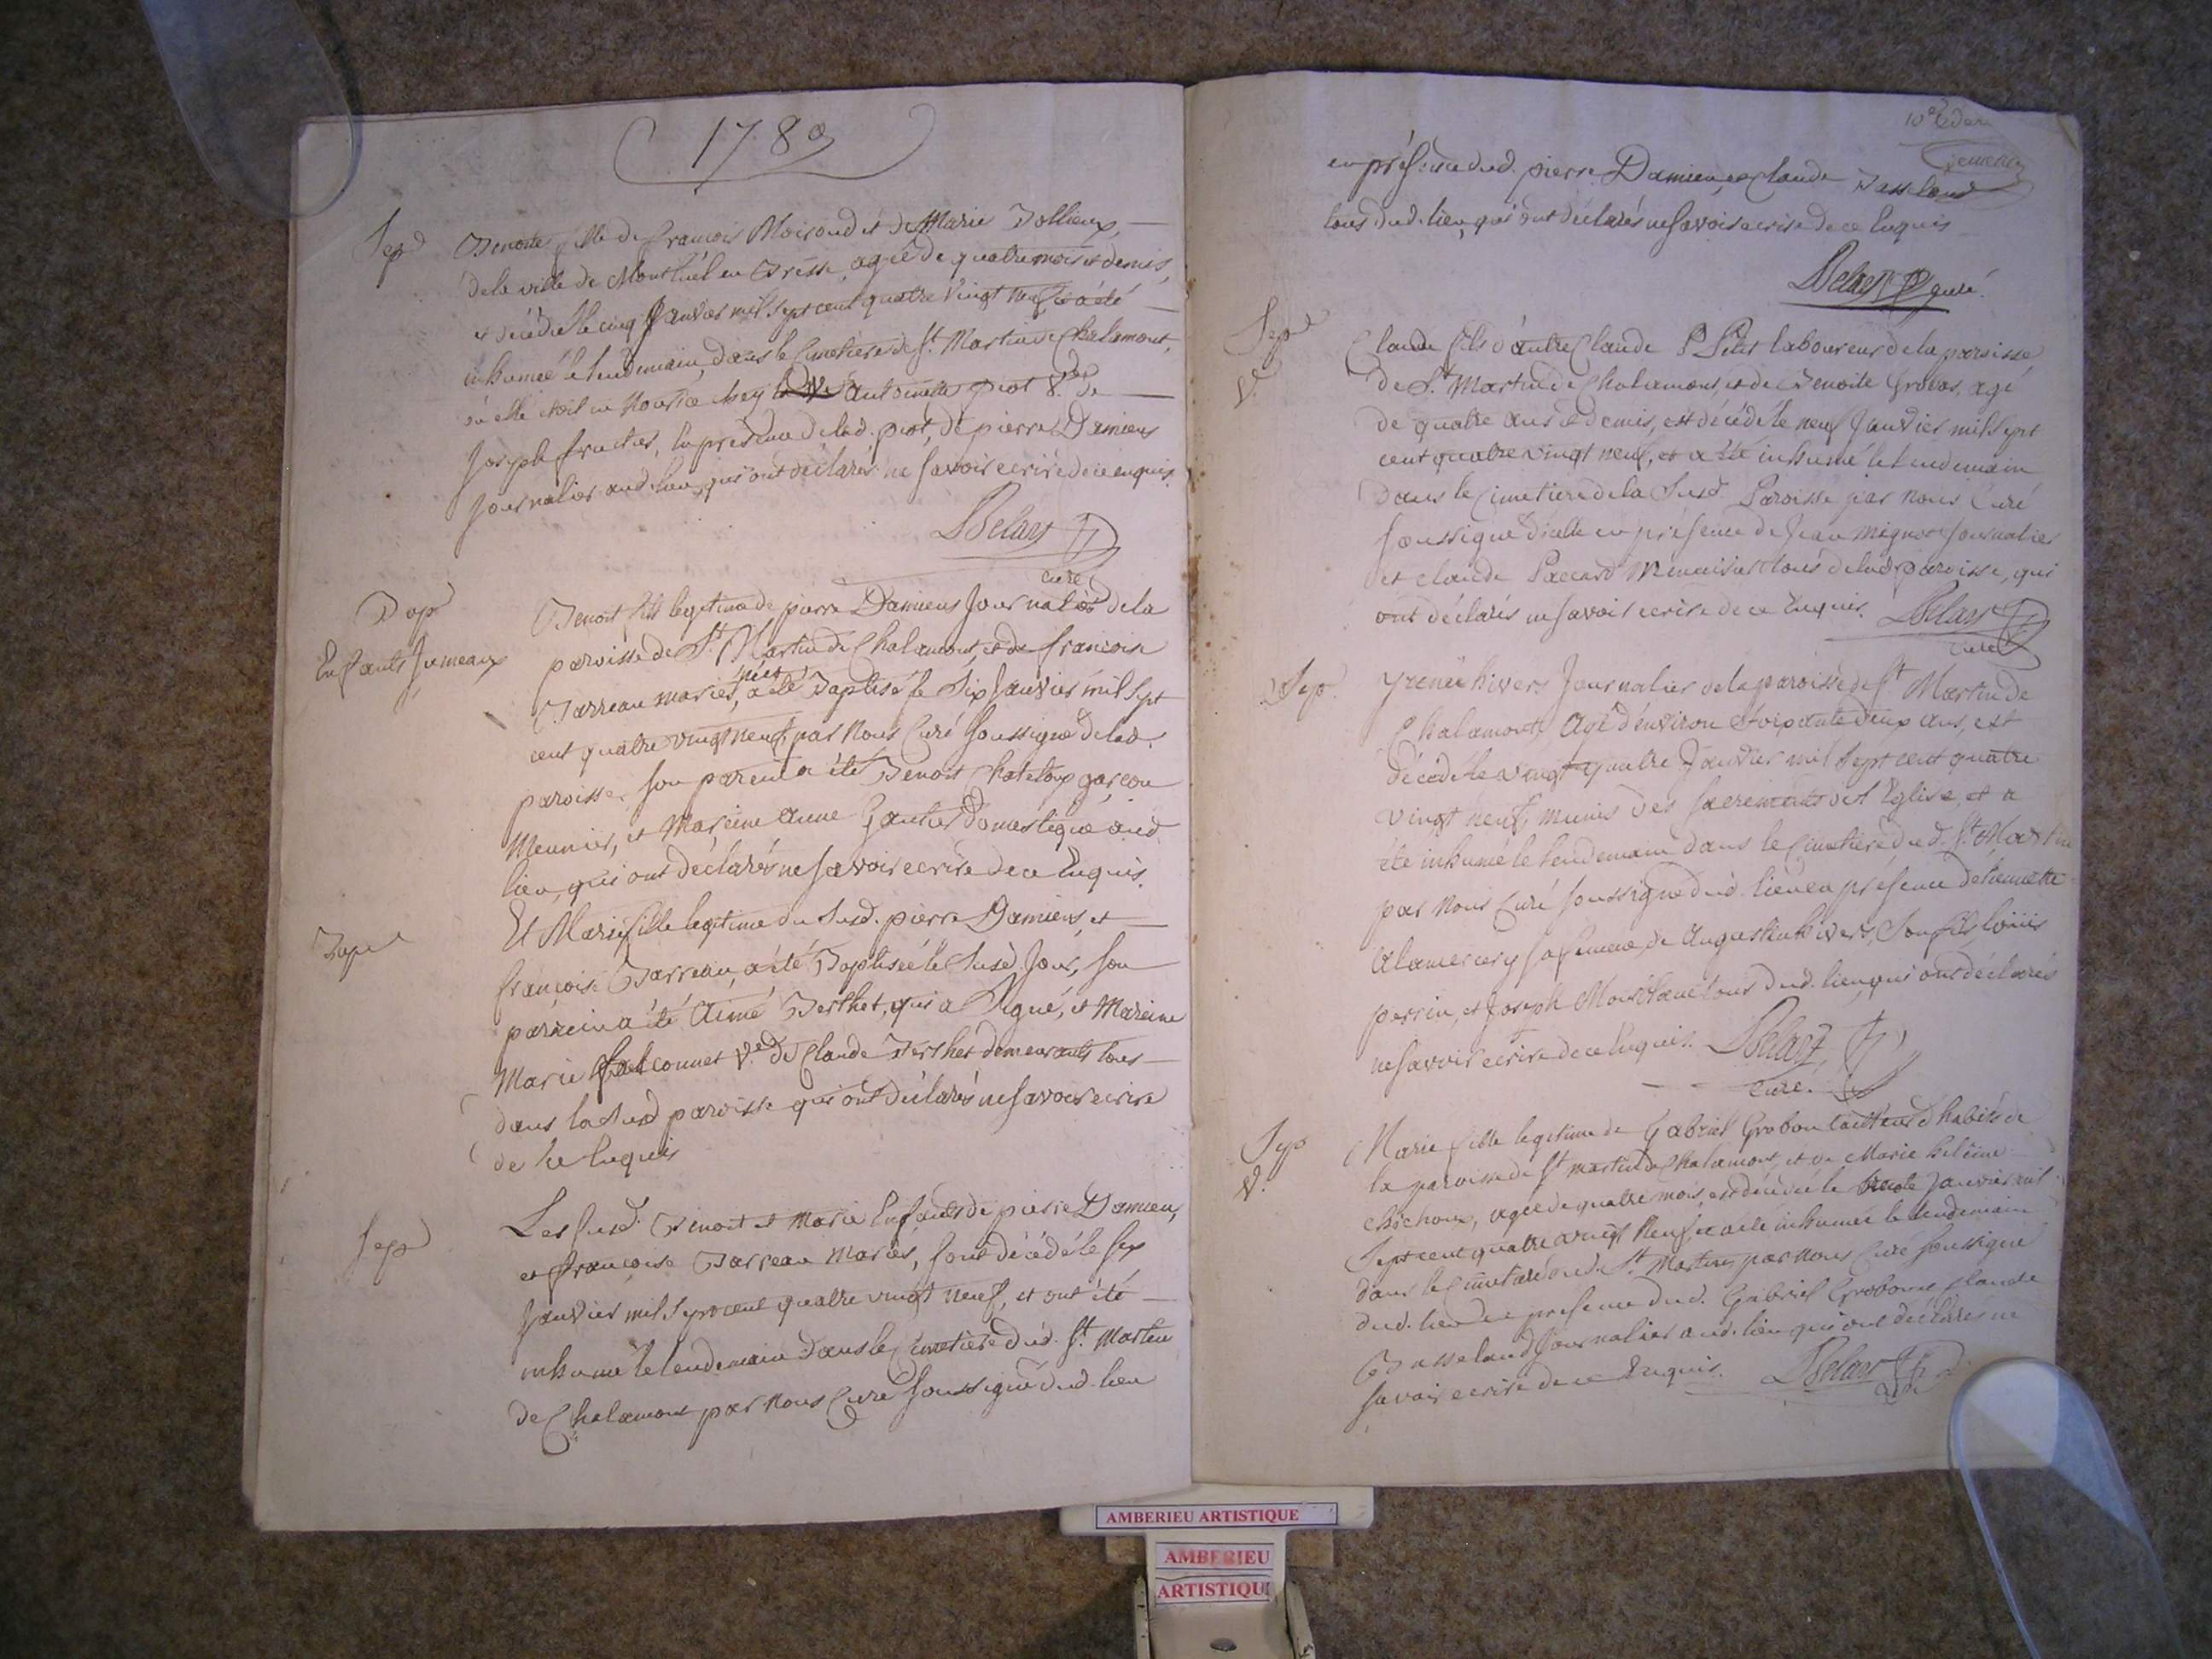 1789
Sep
Benoite fille de francois Moiroud et de Marie Bollieux,
de la ville de Montluel en Bresse, agée de quatre mois et demis,
est décédé le cinq Janvier mil sept cent quatre vingt neuf et a été
inhumée le lendemain, dans le Cimetiere de St. Martin de Chalamont,
ou elle étoit en Nourice chez antoinette piot Ve. de
Joseph fruitier, en presence de lad. piot, de pierre Damiens
Journalier aud. lieu, qui ont déclarés ne savoir ecrire de ce enquis.
Curé
Bap
Enfants Jumeaux
Benoit fils légitime de pierre Damiens Journalier de la
paroisse de St. Martin de Chalamont, et de francoise
Barreau mariés, a été Baptisé le Six Janvier mil sept
cent quatre vingt neuf, par Nous Curé Soussigné de lad.
paroisse, son parein a été Benoit Chateloup garcon
Meunier, et Mareine anne Gautier Domestique aud.
lieu, qui ont déclarés ne savoir ecrire de ce Enquis.
Bap
Et Marie fille legitime du Susd. pierre Damiens, et
françoise Barreau, a été Baptisée le Susd. Jour, son
parrein a été Aimé Berthet, qui a Signé, et Mareine
Marie falconnet Ve. de Claude Berthet demeurants tous
dans la Susd. paroisse qui ont déclarés ne savoir ecrire
de ce Enquis
Sep
Les Susd. Benoit et Marie Enfants de pierre Damiens,
et françoise Barreau Mariés, sont décédé le Six
Janvier mil sept cent quatre vingt neuf, et ont été
inhumé le lendemain dans le Cimetiere dud. St. Martin
de Chalamont par Nous Curé Soussigné dud. lieu
en présence dud. pierre Damiens, et Claude Basseland
tous dud. lieu, qui ont déclarés ne savoir ecrire de ce Enquis
Curé.
Sep
V.
Claude fils d'autre Claude Petit laboureur de la paroisse
de St. Martin de Chalamont, et de Benoite Grobas, agé
de quatre ans et demis, est décédé le neuf Janvier mil sept
cent quatre vingt neuf, et a été inhumé le lendemain
dans le Cimetiere de la Susd. Paroisse par Nous Curé
Soussigné d'icelle en présence de Jean Mignot Journalier
et Claude Paccard Menuisier tous de lad. paroisse, qui
ont déclarés ne savoir ecrire de ce Enquis.
Curé
Sep.
yrenée hivers Journalier de la paroisse de St. Martin de
Chalamont, Agé d'environ Soixante deux ans, est
décédé le vingt quatre Janvier mil Sept cent quatre
vingt neuf, munis des sacrements de l'Eglise, et a
été inhumé le lendemain dans le Cimetiere dud. St. Martin
par Nous Curé soussigné dud. lieu en présence de
sa femme, de Augustin hivers, Son fils, louis
perrin, et Joseph tous dud. lieu qui ont déclarés
ne savoir ecrire de ce Enquis.
Curé.
Sep
V.
Marie fille legitime de Gabriel Grobon tailleur d'habits de
la paroisse de St. martin de Chalamont, et de Marie heleine
Chichoux, agée de quatre mois, est décédée le trente Janvier mil
Sept cent quatre vingt Neuf, et a été inhumée le lendemain
dans le Cimetiere dud. St. Martin, par Nous Curé soussigné
dud. lieu en presence dud. Gabriel Grobon, et Claude
Basseland Journalier aud. lieu qui ont déclarés ne
savoir ecrire de ce Enquis.
AMBERIEU ARTISTIQUE
AMBERIEU
ARTISTIQUE